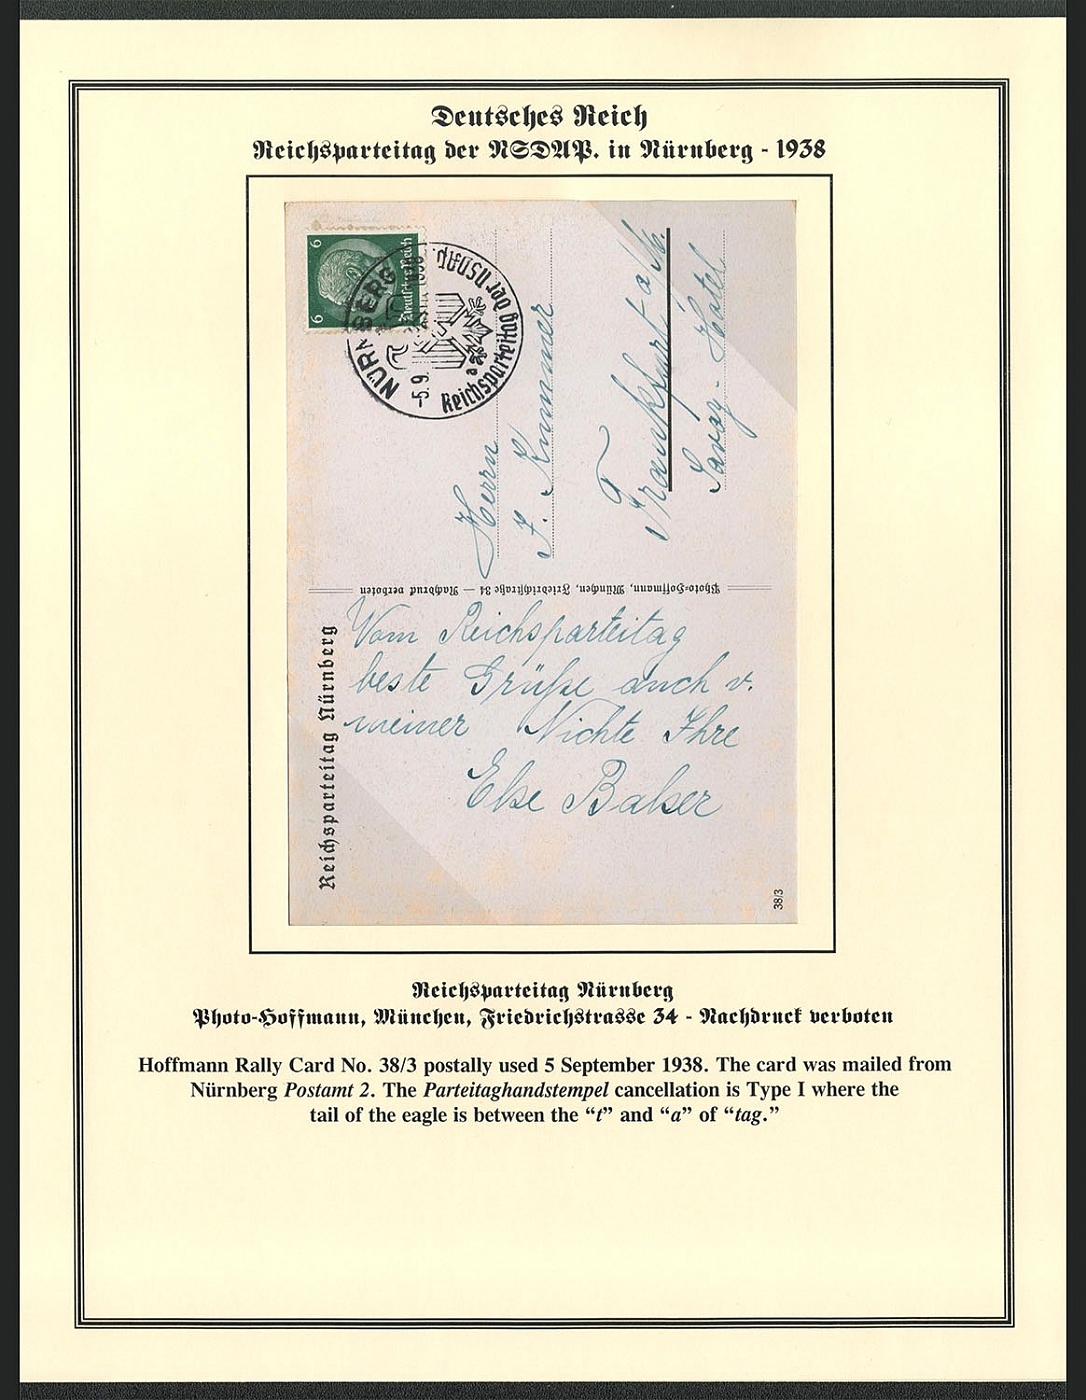 Deutsches Reich
Reichsparteitag der NSDAP. in Nürnberg - 1938
6
6
Deutsches Reich
NÜRNBERG
-5.9.
1938
a
Reichsparteitag der NSDAP.
Herrn
F. Kummer
Frankfurt a/M.
Savoy-Hotel
Photo-Hoffmann, München, Friedrichstraße 34 — Nachdruck verboten
Reichsparteitag Nürnberg
Vom Reichsparteitag
beste Grüße auch v.
meiner Nichte Ihre
Else Balser
38/3
Reichsparteitag Nürnberg
Photo-Hoffmann, München, Friedrichstrasse 34 - Nachdruck verboten
Hoffmann Rally Card No. 38/3 postally used 5 September 1938. The card was mailed from
Nürnberg Postamt 2. The Parteitaghandstempel cancellation is Type I where the
tail of the eagle is between the “t” and “a” of “tag.”